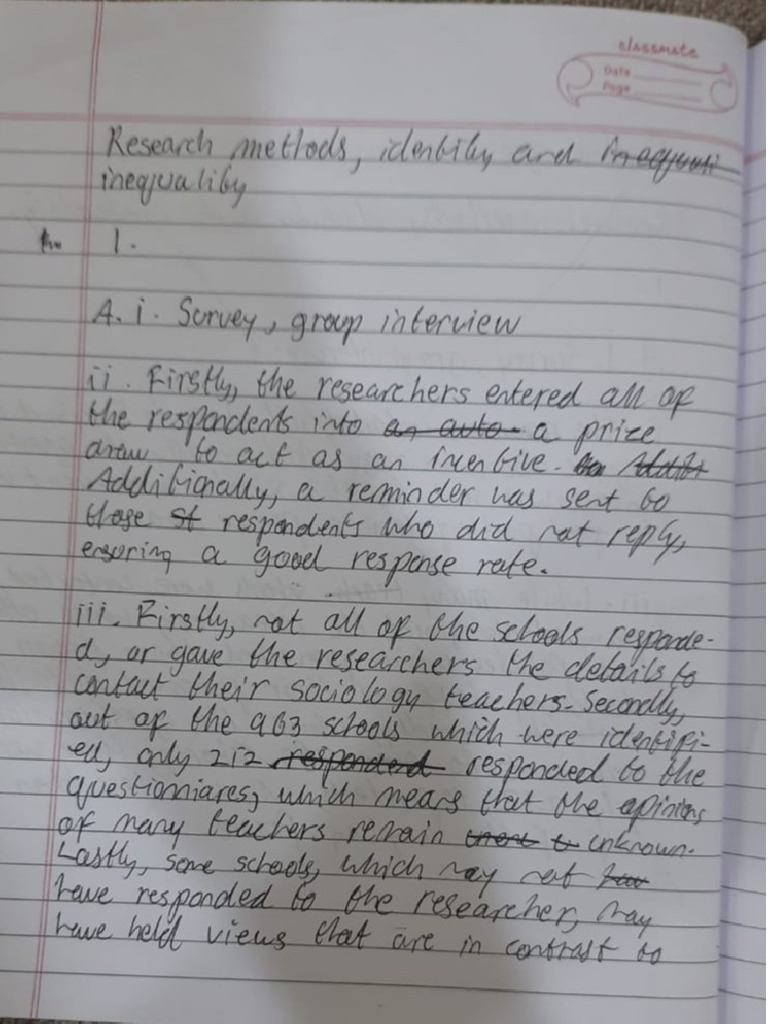 classmate
Date
Page
Research methods, identity and inequality
inequality
1.
A. i. Survey, group interview
ii. Firstly, the researchers entered all of
the respondents into an auto- a prize
draw to act as an incentive.
Additionally, a reminder was sent to
those st respondents who did not reply,
ensuring a good response rate.
iii. Firstly, not all of the schools responde-
d, or gave the researchers the details to
contact their sociology teachers. Secondly,
out of the 903 schools which were identifi-
ed, only 212 responded responded to the
questionniares, which means that the opinions
of many teachers remain unknown.
Lastly, some schools, which may not
have responded to the researcher, may
have held views that are in contrast to